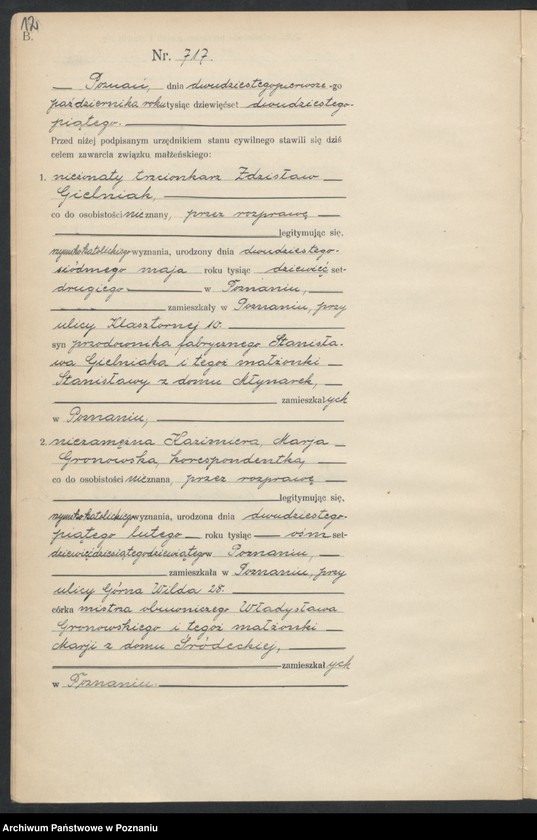 12
B.
Nr. 717.
Poznań, dnia dwudziestegopierwsze-go
października roku tysiąc dziewięćset dwudziestego-
piątego.
Przed niżej podpisanym urzędnikiem stanu cywilnego stawili się dziś
celem zawarcia związku małżeńskiego:
1. nieżonaty trzcionkarz Zdzisław
Gielniak,
co do osobistości nieznany, przez rozprawę
legitymując się,
rzymskokatolickiego wyznania, urodzony dnia dwudziestego-
siódmego maja roku tysiąc dziewięć set-
drugiego w Poznaniu,
zamieszkały w Poznaniu, przy
ulicy Klasztornej 10.
syn przodownika fabrycznego Stanisła-
wa Gielniaka i tegoż małżonki
Stanisławy z domu Młynarek,
zamieszkałych
w Poznaniu,
2. niezamężna Kazimiera, Marja
Gronowska, korespondentka,
co do osobistości nieznana, przez rozprawę
legitymując się,
rzymskokatolickiego wyznania, urodzona dnia dwudziestego-
piątego lutego roku tysiąc ośm set-
dziewięćdziesiątegodziewiątego w Poznaniu,
zamieszkała w Poznaniu, przy
ulicy Górna Wilda 28.
córka mistrza obuwniczego Władysława
Gronowskiego i tegoż małżonki
Marji z domu Śródeckiej,
zamieszkałych
w Poznaniu.
Archiwum Państwowe w Poznaniu